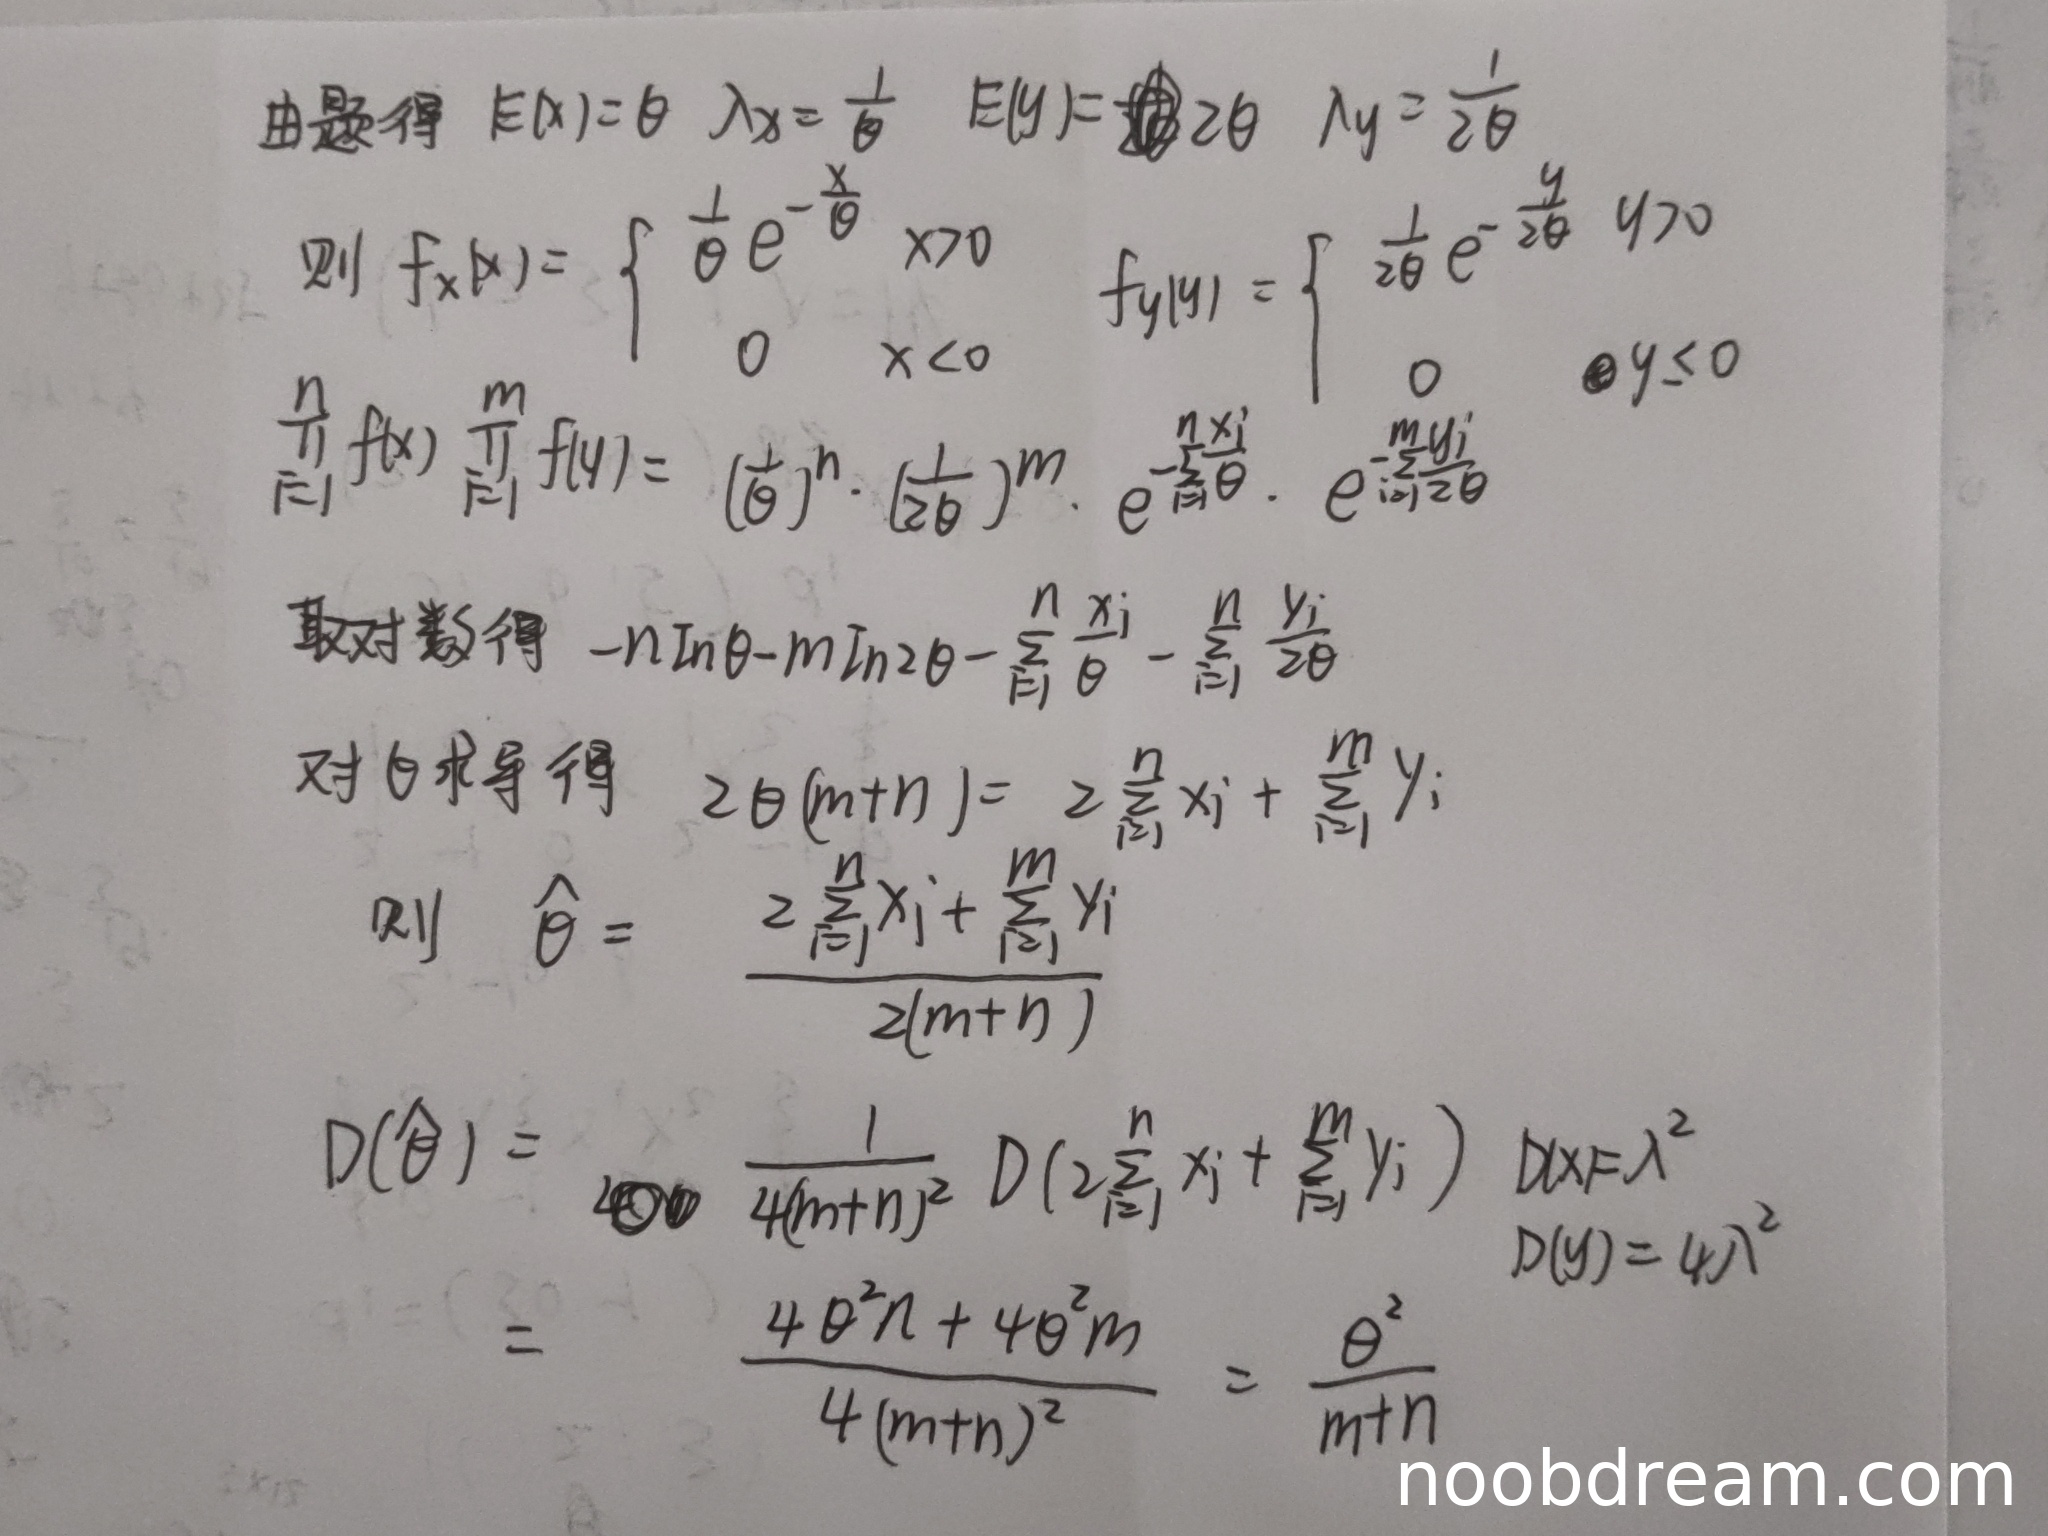 由题得 E(x)=θ λx=1/θ E(y)=2θ λy=1/2θ
则 fx(x)={ 1/θ e^(-x/θ) x>0 fy(y)={ 1/2θ e^(-y/2θ) y>0
0 x<0 0 y≤0
∏_{i=1}^{n} f(x) ∏_{i=1}^{m} f(y)=(1/θ)^n·(1/2θ)^m·e^(-∑_{i=1}^{n} xi/θ)·e^(-∑_{i=1}^{m} yi/2θ)
取对数得 -nInθ-mIn2θ-∑_{i=1}^{n} xi/θ-∑_{i=1}^{n} yi/2θ
对θ求导得 2θ(m+n)=2∑_{i=1}^{n} xi+∑_{i=1}^{m} yi
则 θ̂=(2∑_{i=1}^{n} xi+∑_{i=1}^{m} yi)/2(m+n)
D(θ̂)=1/4(m+n)² D(2∑_{i=1}^{n} xi+∑_{i=1}^{m} yi) D(x)=λ²
D(y)=4λ²
=(4θ²n+4θ²m)/4(m+n)²=θ²/(m+n)
noobdream.com